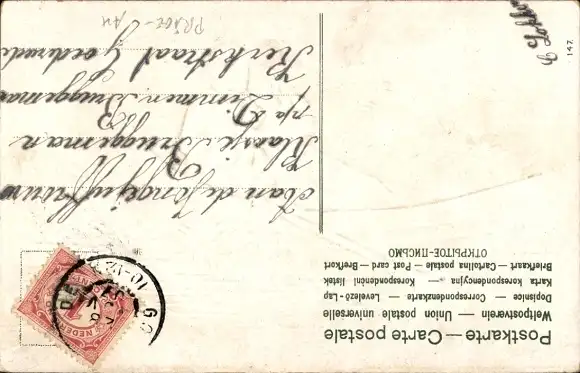 Postkarte — Carte postale
Weltpostverein — Union postale universelle
Dopisnice — Correspondenzkarte — Levelező-Lap
Karta korespondencyjna — Korrespondenzkort listek
Briefkaart — Cartolina postale — Post card — Brefkort
ОТКРЫТОЕ-ПИСЬМО
147
Aan de Jongejufvrouw
Klaasje Bruggeman
p/a D. Zimmerm. Bruggeman
Kerkstraat Goedereede